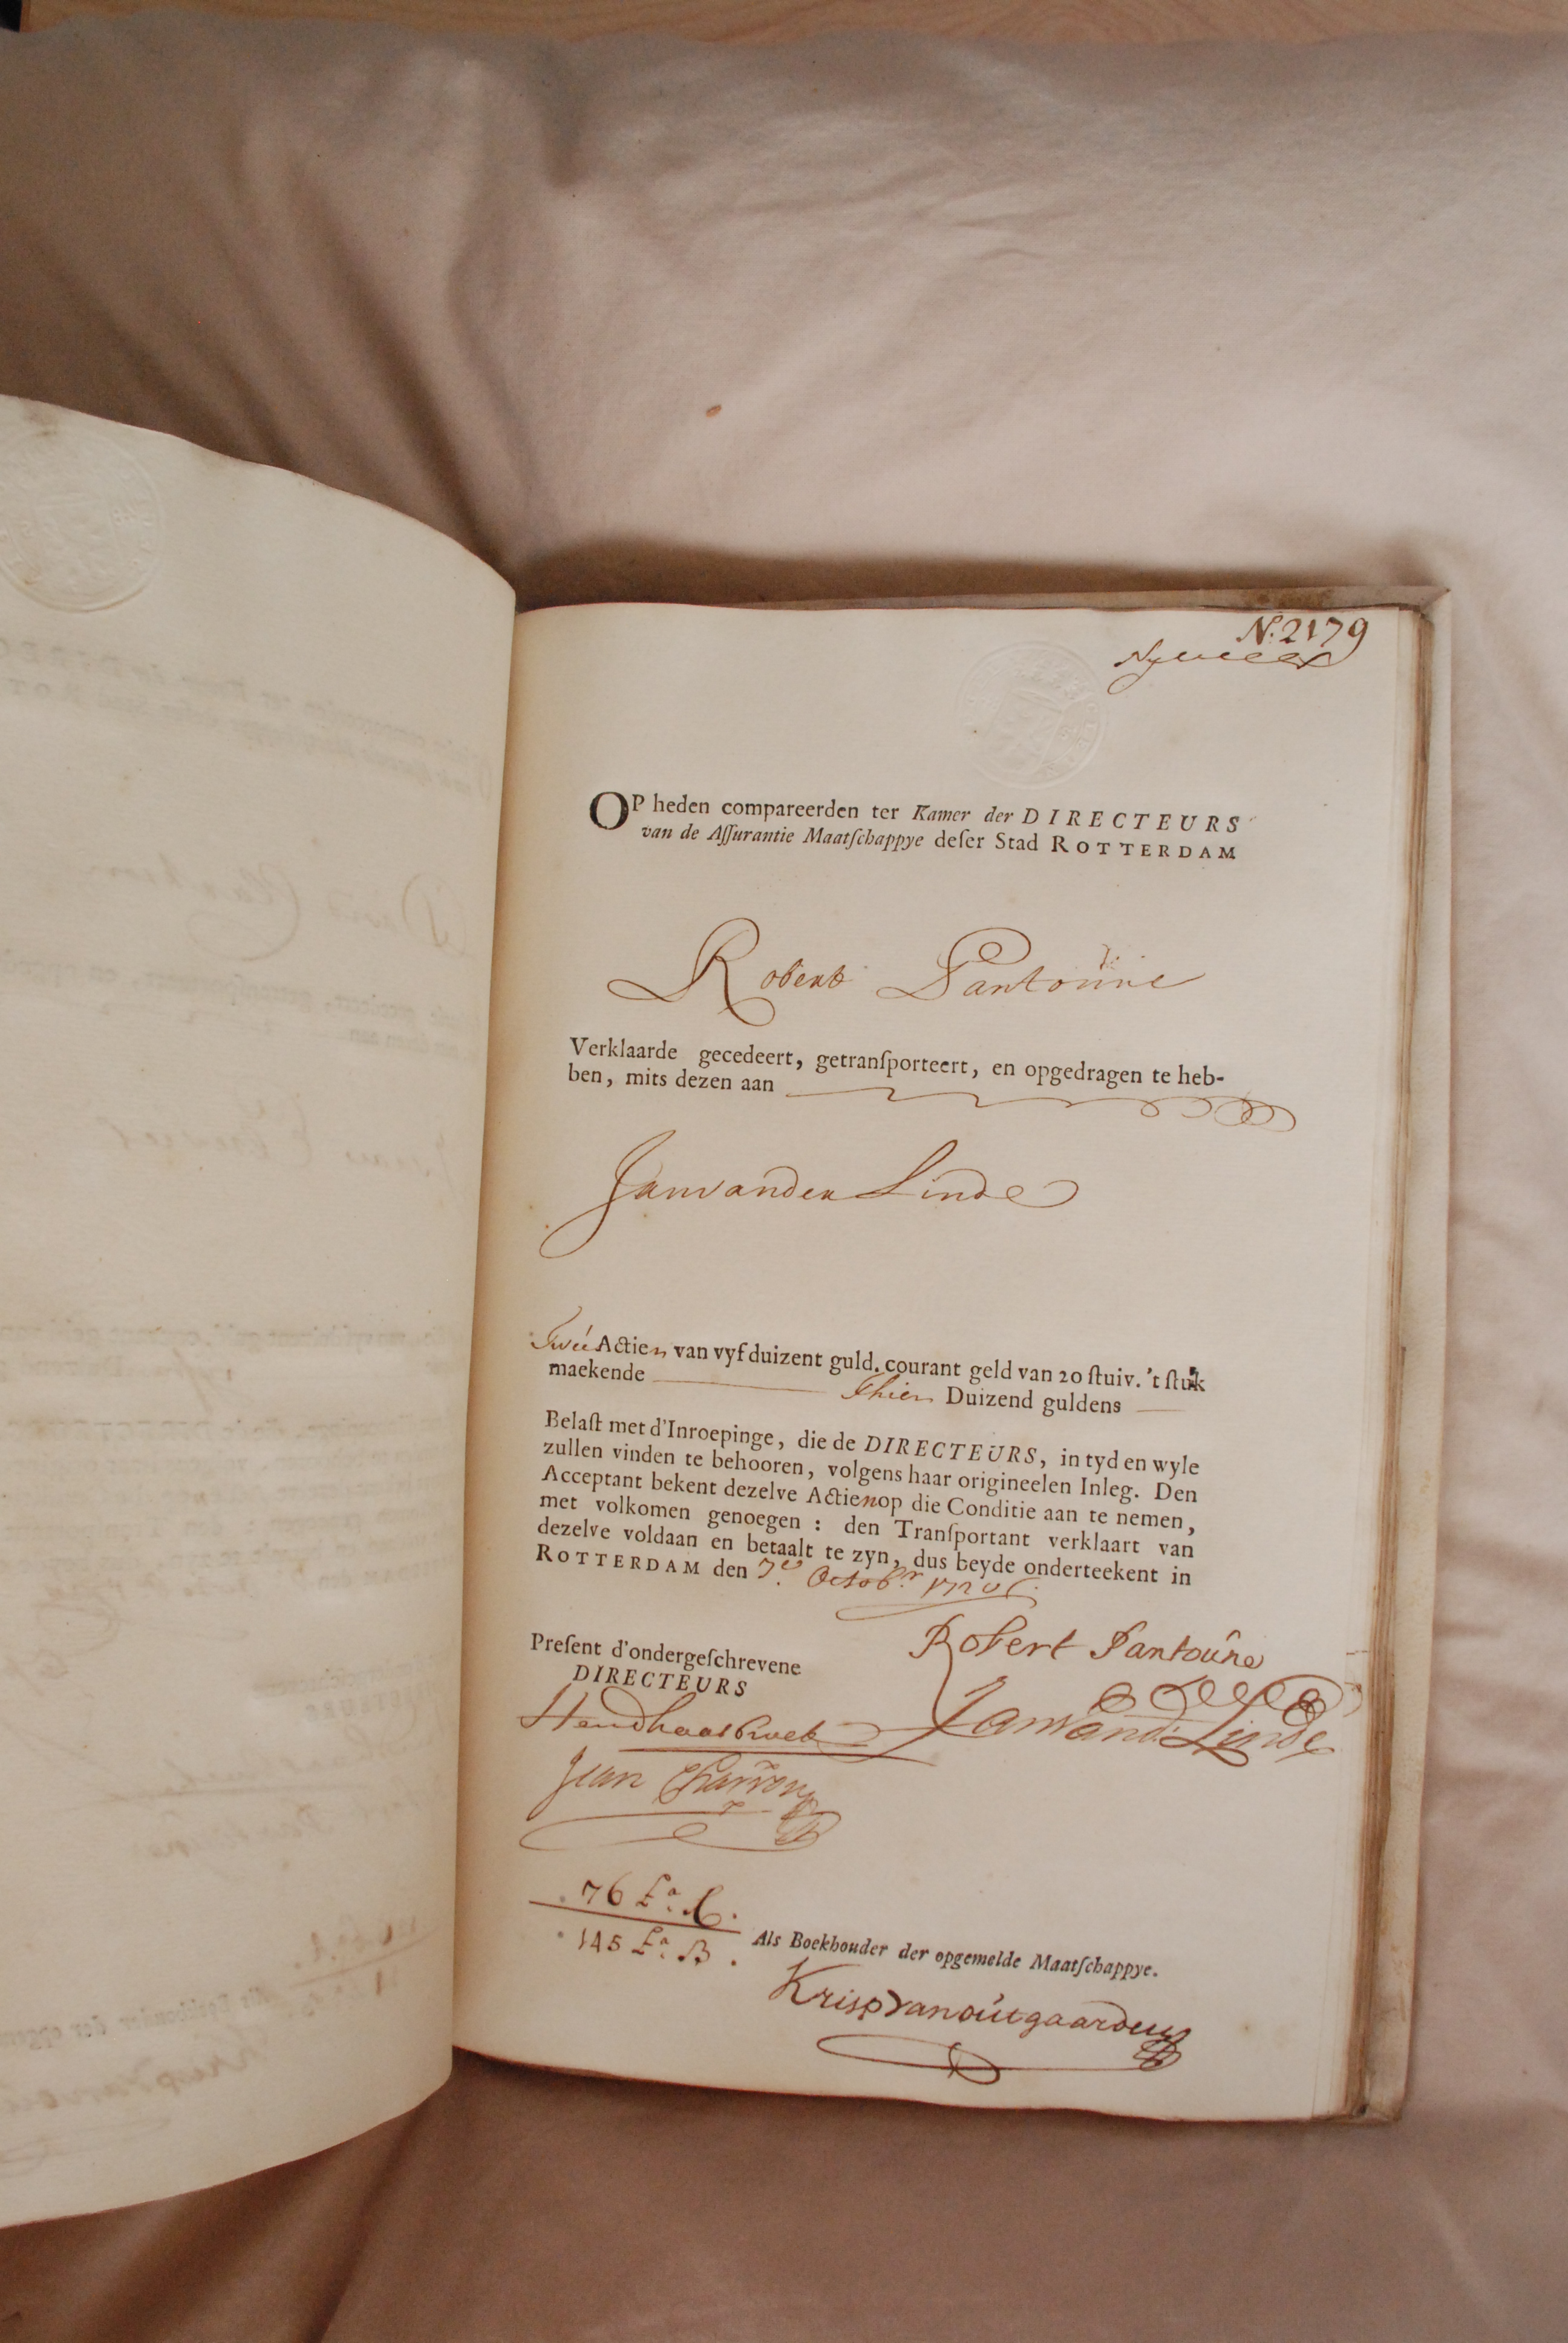 N. 2179
OP heden compareerden ter Kamer der DIRECTEURS
van de Aſſurantie Maatſchappye deſer Stad ROTTERDAM
Robert Santoüne
Verklaarde gecedeert, getranſporteert, en opgedragen te heb-
ben, mits dezen aan
Jan vanden Linde
Twée Actien van vyf duizent guld. courant geld van 20 ſtuiv. 't ſtuk
maekende Thien Duizend guldens
Belaſt met d'Inroepinge, die de DIRECTEURS, in tyd en wyle
zullen vinden te behooren, volgens haar origineelen Inleg. Den
Acceptant bekent dezelve Actien op die Conditie aan te nemen,
met volkomen genoegen : den Tranſportant verklaart van
dezelve voldaan en betaalt te zyn, dus beyde onderteekent in
ROTTERDAM den 7e Octobr. 1720
Robert Santoüne
Preſent d'ondergeſchrevene
DIRECTEURS
Jan Vand: Linde
Jean
76 La. C.
145 La. B.
Als Boekhouder der opgemelde Maatſchappye.
Krisp van outgaarden